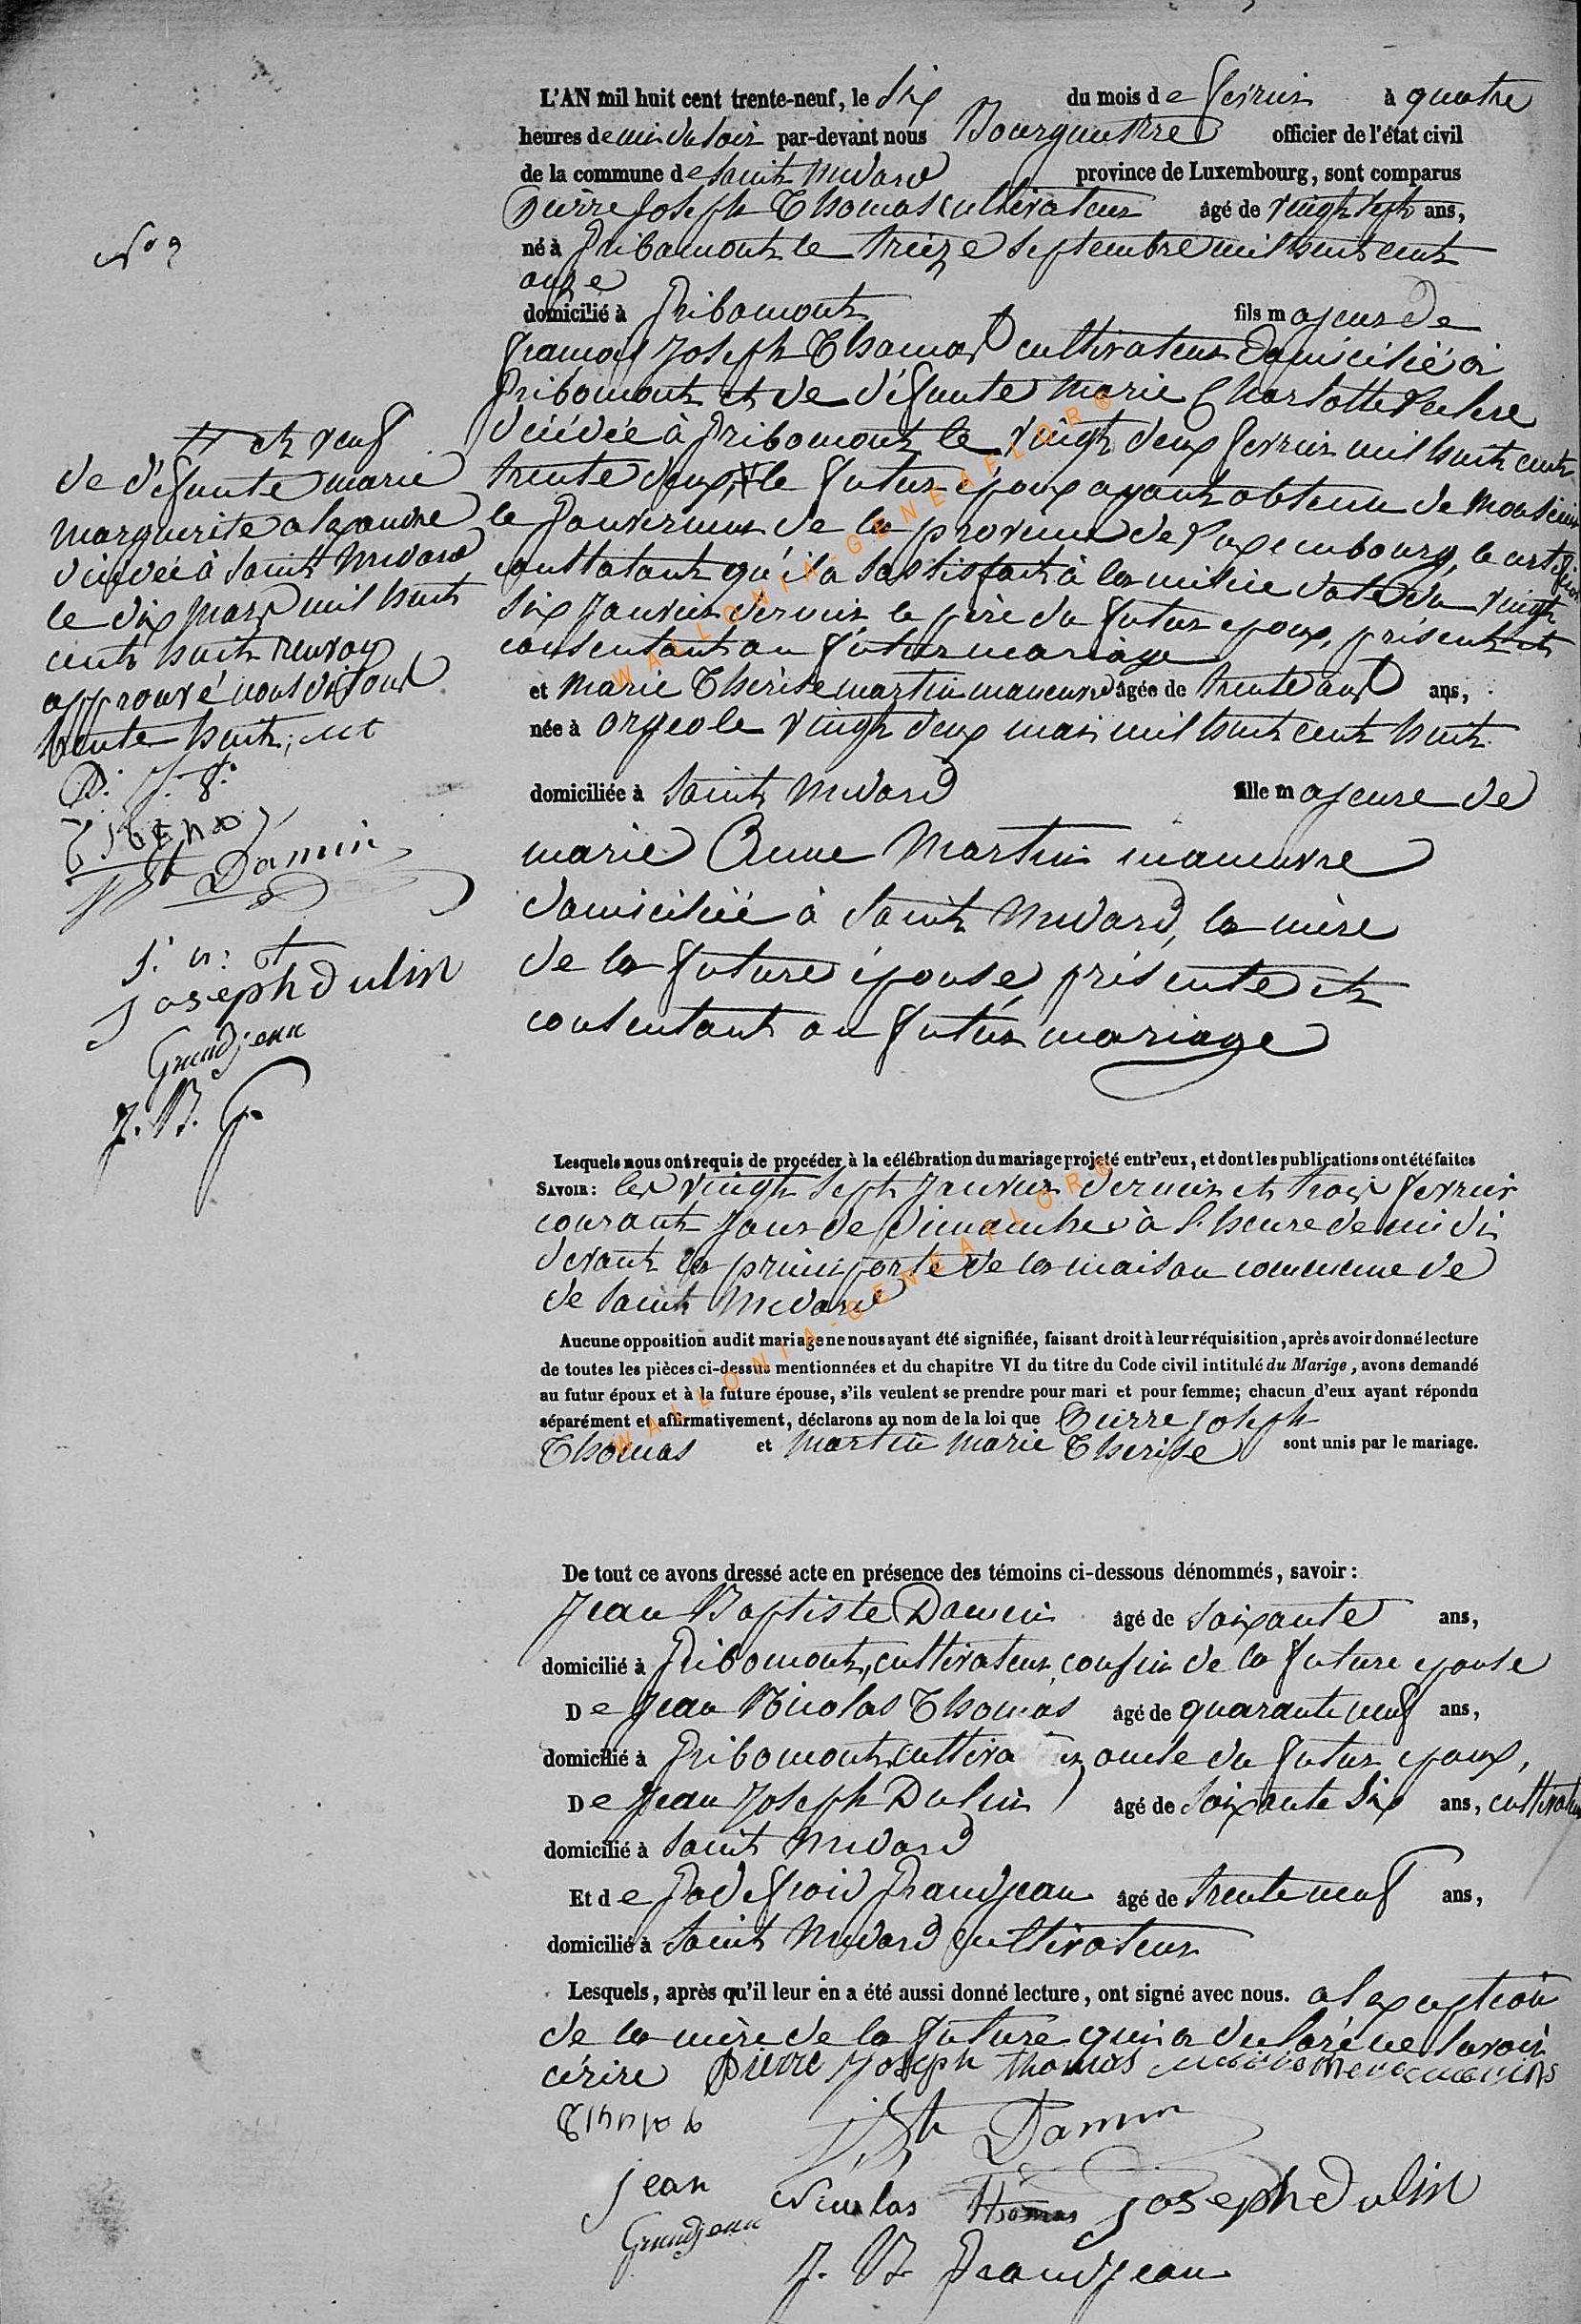 L'AN mil huit cent trente-neuf, le six du mois de fevrier à quatre
heures de du soir par-devant nous Bourgmestre officier de l'état civil
de la commune de Saint Médard province de Luxembourg, sont comparus
Pierre Joseph Thomas cultivateur âgé de vingt sept ans,
né à Gribomont le treize septembre mil huit cent
onze
domicilié à Gribomont fils majeur de
François Joseph Thomas cultivateur domicilié à
Gribomont et de défunte Marie Charlotte
décédée à Gribomont le vingt deux fevrier mil huit cent
trente deux, # le futur époux ayant obtenu de Monsieur
le Gouverneur de la province de Luxembourg, le certificat
constatant qu'il a satisfait à la milice daté du vingt
six janvier dernier le père du futur epoux, présent et
consentant au futur mariage
et Marie Thérèse Martin manœuvre âgée de trente ans ans,
née à Orgeo le vingt deux mai mil huit cent huit
domiciliée à Saint Médard fille majeure de
marie Anne Martin manœuvre
domiciliée à Saint Médard, la mère
de la future épouse, présente et
consentant au futur mariage
N° 2
# et veuf
de défunte marie
Marguerite alexandre
décédée à Saint Médard
le dix mars mil huit
cent huit renvoy
approuvé nous disons
trente huit; 
P. J. T.
Jbt Damin
J. n: T
Joseph Dulin
Grandjean
J. B. G.
Lesquels nous ont requis de procéder à la célébration du mariage projeté entr'eux, et dont les publications ont été faites
SAVOIR: les vingt sept janvier dernier et trois fevrier
courant jour de dimanche à l'heure de midi
devant la princ porte de la maison commune de
de Saint Médard
Aucune opposition audit mariage ne nous ayant été signifiée, faisant droit à leur réquisition, après avoir donné lecture
de toutes les pièces ci-dessus mentionnées et du chapitre VI du titre du Code civil intitulé du Marige, avons demandé
au futur époux et à la future épouse, s'ils veulent se prendre pour mari et pour femme; chacun d'eux ayant répondu
séparément et affirmativement, déclarons au nom de la loi que Pierre Joseph
Thomas et Martin Marie Thérèse sont unis par le mariage.
De tout ce avons dressé acte en présence des témoins ci-dessous dénommés, savoir:
Jean Baptiste Damin âgé de soixante ans,
domicilié à Gribomont, cultivateur, cousin de la future epouse
De Jean Nicolas Thomas âgé de quarante neuf ans,
domicilié à Gribomont cultivateur oncle du futur epoux,
De Jean Joseph Dulin âgé de soixante six ans, cultivateur
domicilié à Saint Médard
Et de Godefroid Grandjean âgé de trente neuf ans,
domicilié à Saint Médard cultivateur
Lesquels, après qu'il leur en a été aussi donné lecture, ont signé avec nous. a l'exception
de la mère de la future qui a declaré ne savoir
cérire Pierre Joseph thomas
Jbt Damin
jean Nicolas thomas Joseph Dulin
Grandjean
J. B. Grandjean
WALLONIA-GENEAFLOR®
WALLONIA-GENEAFLOR®